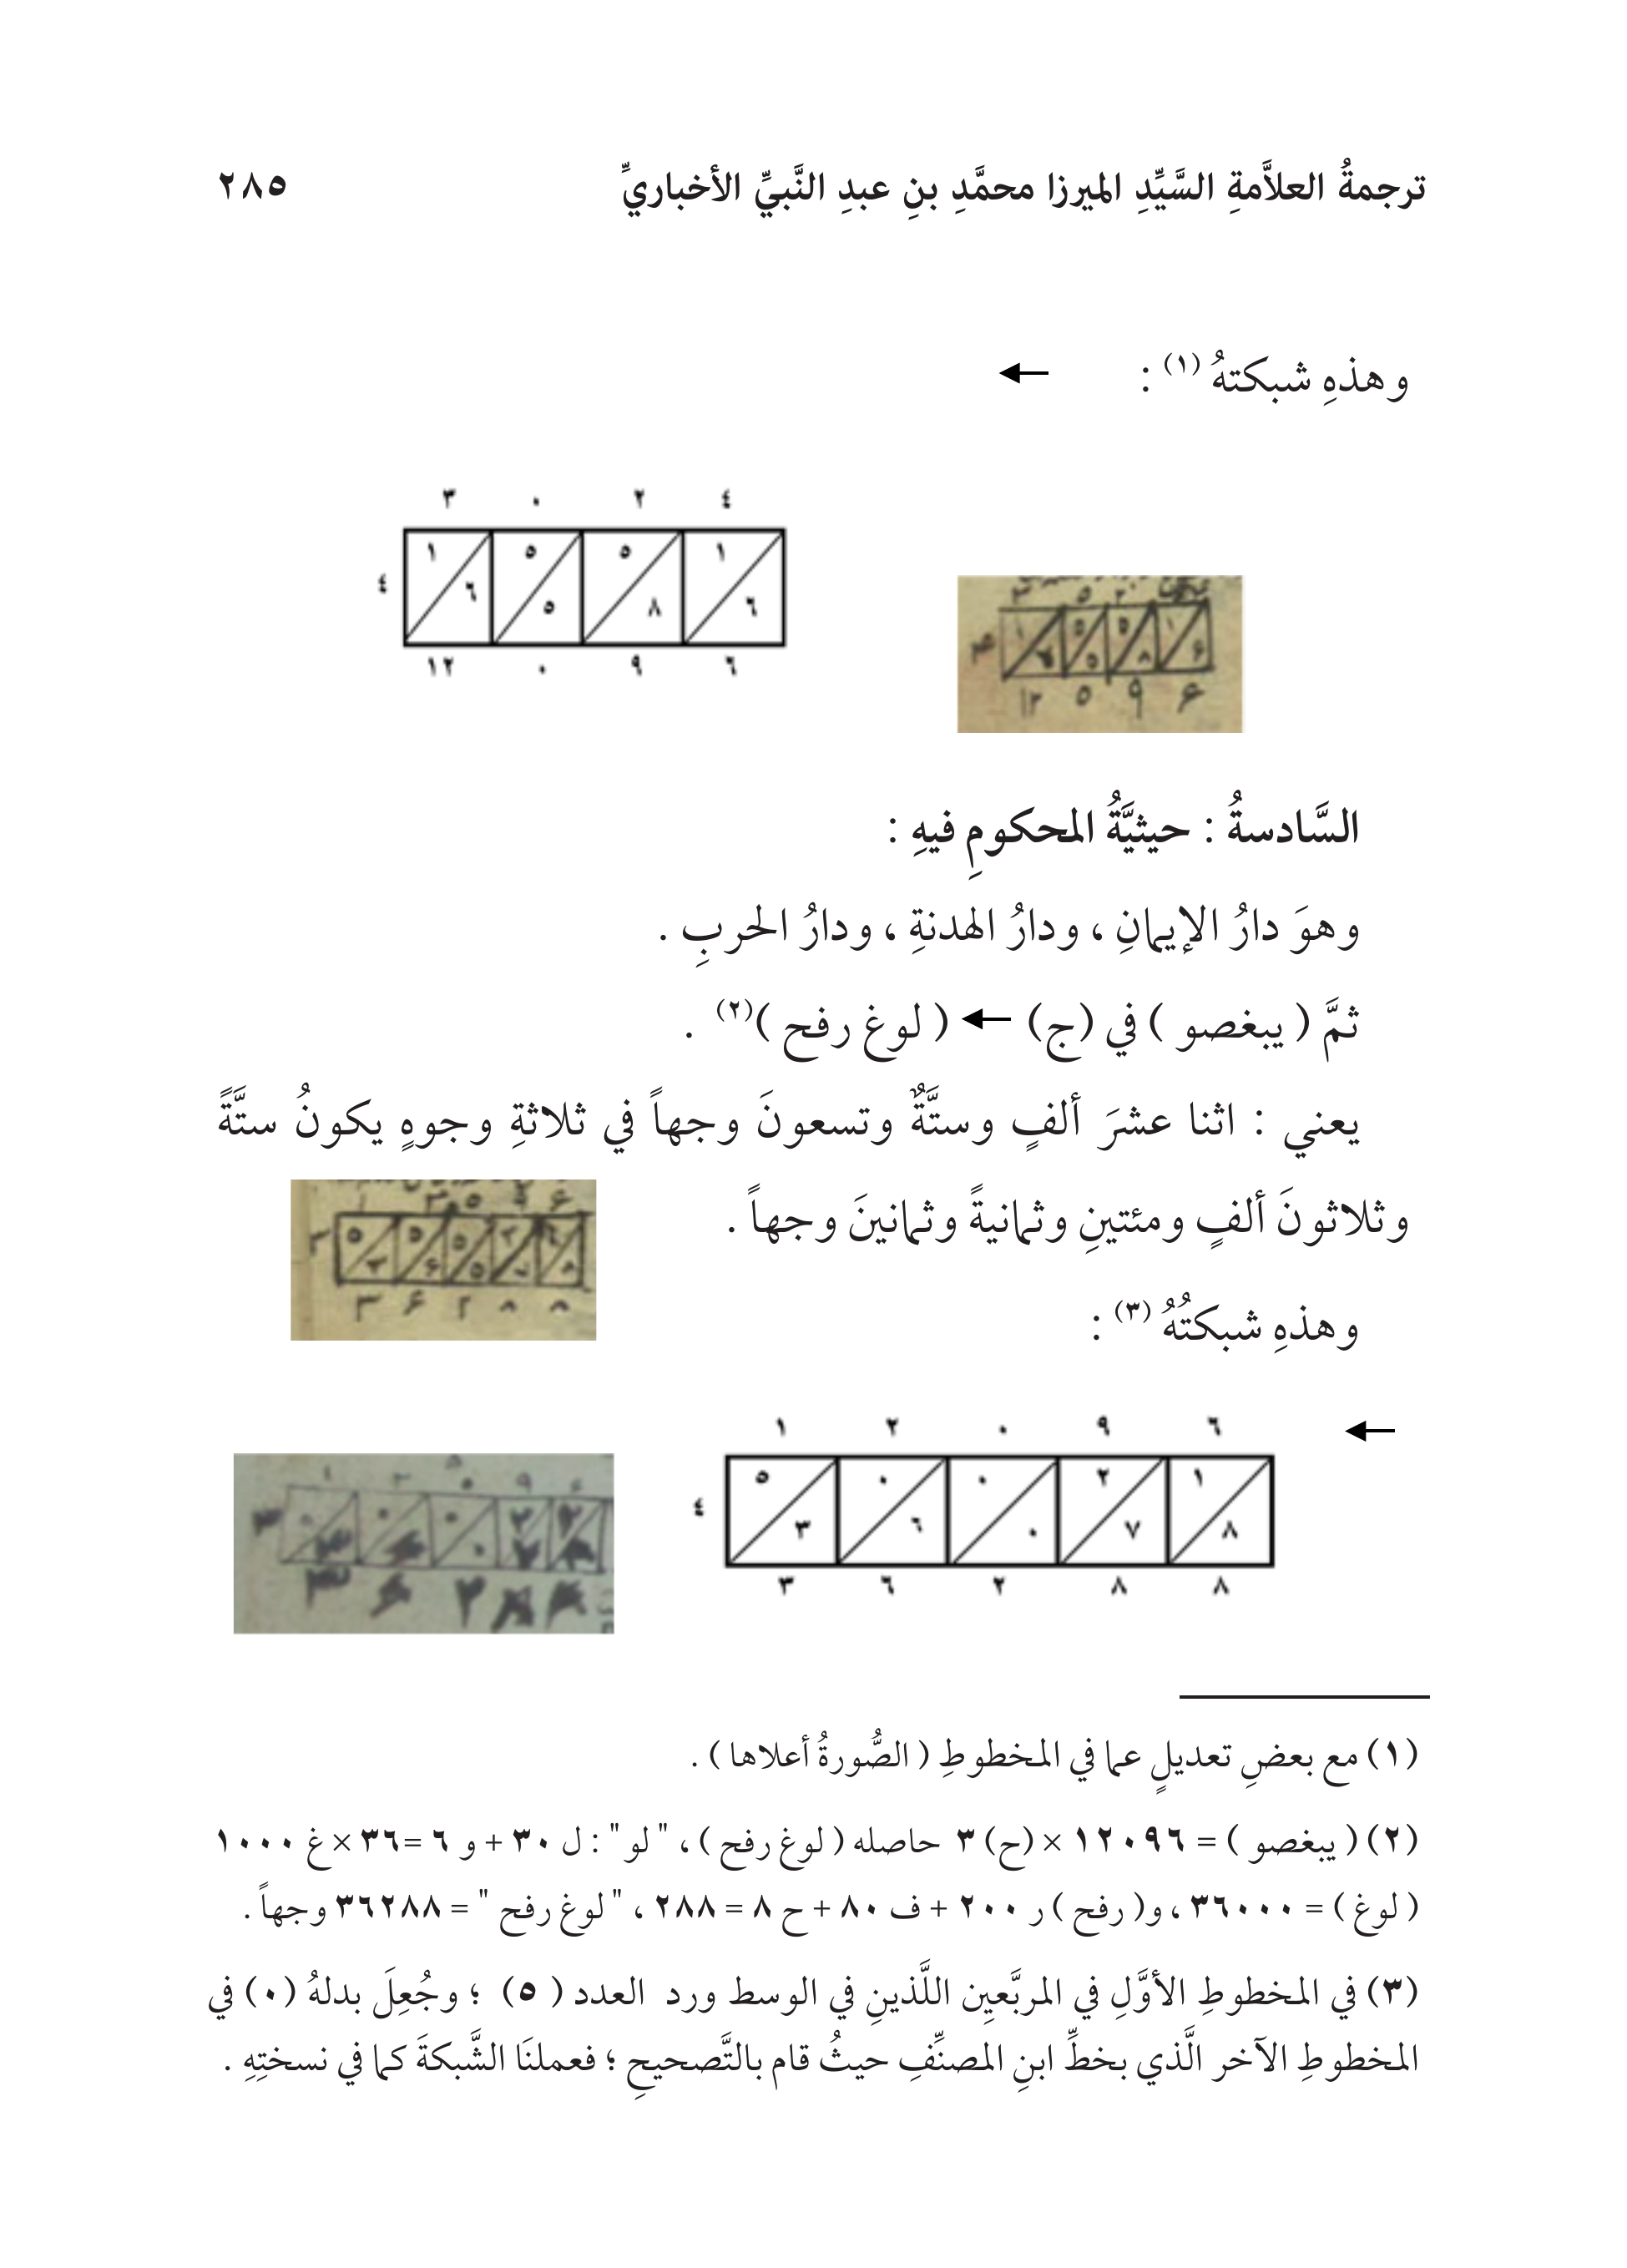 ترجمةُ العلاَّمةِ السَّيِّدِ الميرزا محمَّدِ بنِ عبدِ النَّبيِّ الأخباريِّ ٢٨٥
وهذهِ شبكتهُ (١) : ←
٣ ٠ ٢ ٤
١ ٥ ٥ ١
٤
٦ ٥ ٨ ٦
١٢ ٠ ٩ ٦
السَّادسةُ : حيثيَّةُ المحكومِ فيهِ :
وهوَ دارُ الإيمانِ ، ودارُ الهدنةِ ، ودارُ الحربِ .
ثمَّ ( يبغصو ) في (ج) ← ( لوغ رفح )(٢) .
يعني : اثنا عشرَ ألفٍ وستَّةٌ وتسعونَ وجهاً في ثلاثةِ وجوهٍ يكونُ ستَّةً
وثلاثونَ ألفٍ ومئتينِ وثمانيةً وثمانينَ وجهاً .
وهذهِ شبكتُهُ (٣) :
←
١ ٢ ٠ ٩ ٦
٥ ٠ ٠ ٢ ١
٤
٣ ٦ ٠ ٧ ٨
٣ ٦ ٢ ٨ ٨
(١) مع بعضِ تعديلٍ عما في المخطوطِ ( الصُّورةُ أعلاها ) .
(٢) ( يبغصو ) = ١٢٠٩٦ × (ح) ٣ حاصله ( لوغ رفح ) ، " لو " : ل ٣٠ + و ٦ =٣٦ × غ ١٠٠٠
( لوغ ) = ٣٦٠٠٠ ، و( رفح ) ر ٢٠٠ + ف ٨٠ + ح ٨ = ٢٨٨ ، " لوغ رفح " = ٣٦٢٨٨ وجهاً .
(٣) في المخطوطِ الأوَّلِ في المربَّعينِ اللَّذينِ في الوسط ورد العدد ( ٥ ) ؛ وجُعِلَ بدلهُ (٠) في
المخطوطِ الآخر الَّذي بخطِّ ابنِ المصنِّفِ حيثُ قام بالتَّصحيحِ ؛ فعملنَا الشَّبكةَ كما في نسختِهِ .